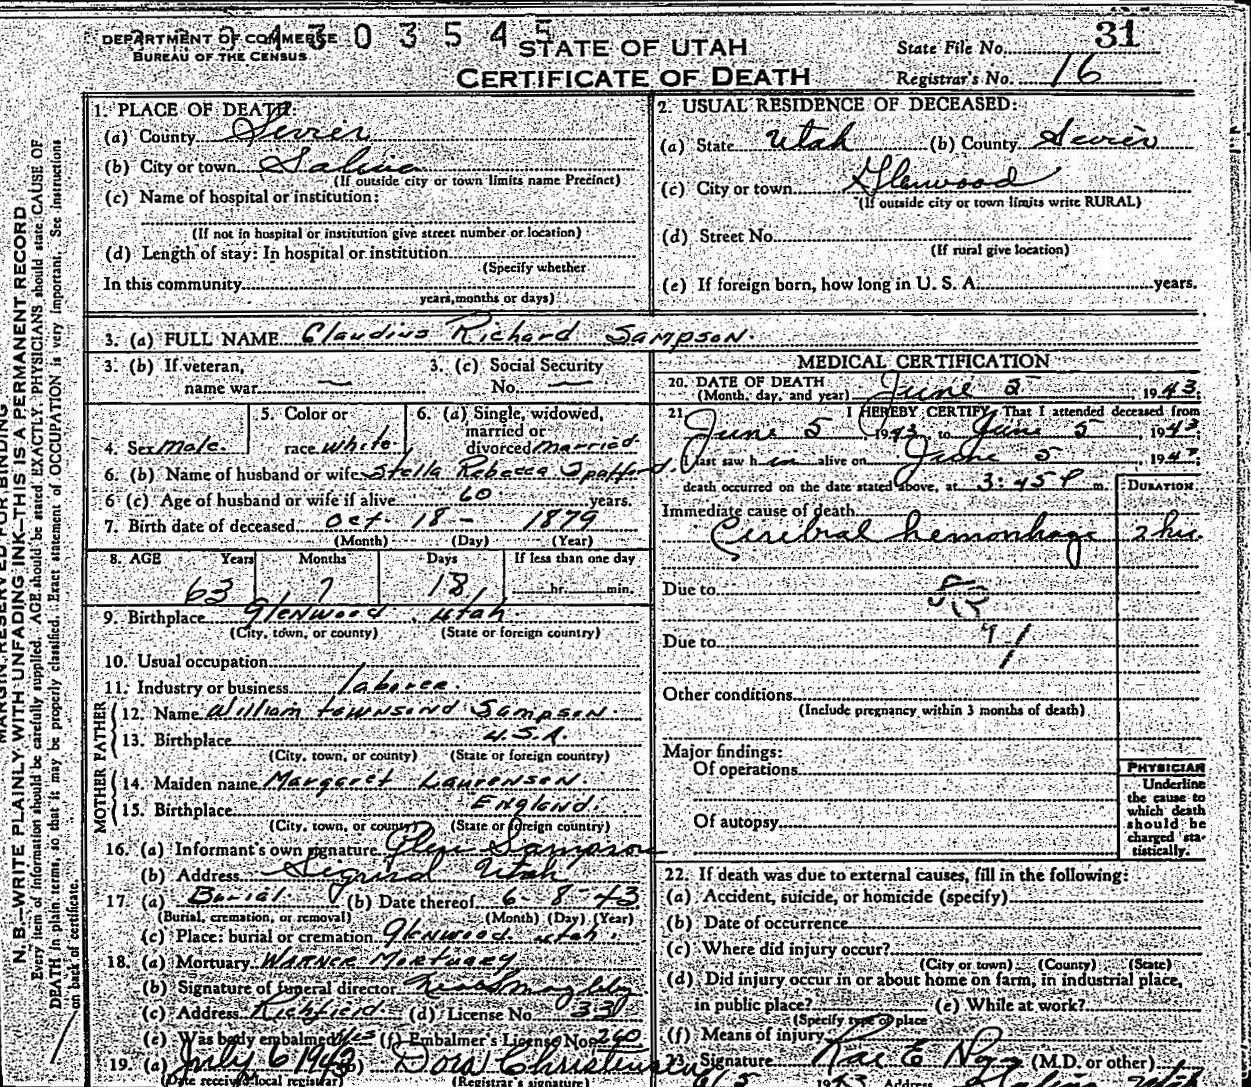 DEPARTMENT OF COMMERCE
BUREAU OF THE CENSUS
0 4 3 0 3 5 4 5
STATE OF UTAH
CERTIFICATE OF DEATH
State File No. 31
Registrar's No. 16
MARGIN RESERVED FOR BINDING
N. B.—WRITE PLAINLY WITH UNFADING INK—THIS IS A PERMANENT RECORD
Every item of information should be carefully supplied. AGE should be stated EXACTLY. PHYSICIANS should state CAUSE OF
DEATH in plain terms, so that it may be properly classified. Exact statement of OCCUPATION is very important. See Instructions
on back of certificate.
1. PLACE OF DEATH:
(a) County Sevier
(b) City or town Salina
(If outside city or town limits name Precinct)
(c) Name of hospital or institution:
(If not in hospital or institution give street number or location)
(d) Length of stay: In hospital or institution
(Specify whether
In this community
years, months or days)
2. USUAL RESIDENCE OF DECEASED:
(a) State Utah (b) County Sevier
(c) City or town Glenwood
(If outside city or town limits write RURAL)
(d) Street No.
(If rural give location)
(e) If foreign born, how long in U. S. A. years.
3. (a) FULL NAME Claudius Richard Sampson.
3. (b) If veteran,
name war —
3. (c) Social Security
No. —
4. Sex male.
5. Color or
race white.
6. (a) Single, widowed,
married or
divorced married
6. (b) Name of husband or wife Stella Rebecca Spafford.
6 (c) Age of husband or wife if alive 60 years.
7. Birth date of deceased Oct. 18 - 1879
(Month) (Day) (Year)
8. AGE Years Months Days If less than one day
63 7 18 hr. min.
9. Birthplace Glenwood. Utah.
(City, town, or county) (State or foreign country)
10. Usual occupation
11. Industry or business laborer.
FATHER
12. Name William Townsend Sampson.
13. Birthplace U.S.A.
(City, town, or county) (State or foreign country)
MOTHER
14. Maiden name Margaret Laurenson.
15. Birthplace England.
(City, town, or county) (State or foreign country)
16. (a) Informant's own signature Glen Sampson
(b) Address Sigurd Utah
17. (a) Burial (b) Date thereof 6-8-43
(Burial, cremation, or removal) (Month) (Day) (Year)
(c) Place: burial or cremation Glenwood. Utah.
18. (a) Mortuary Warner Mortuary
(b) Signature of funeral director
(c) Address Richfield (d) License No. 331
(e) Was body embalmed yes (f) Embalmer's License No. 260
19. (a) July 6 1943 (b) Dora Christensen
(Date received local registrar) (Registrar's signature)
MEDICAL CERTIFICATION
20. DATE OF DEATH
(Month, day, and year) June 5 1943.
21. I HEREBY CERTIFY, That I attended deceased from
June 5, 1943 to June 5, 1943
I last saw him alive on June 5, 194
death occurred on the date stated above, at 3:45 P m.
DURATION
Immediate cause of death
Cerebral hemorrhage 2 hrs.
Due to
Due to
Other conditions
(Include pregnancy within 3 months of death)
Major findings:
Of operations
Of autopsy
PHYSICIAN
Underline
the cause to
which death
should be
charged sta-
tistically.
22. If death was due to external causes, fill in the following:
(a) Accident, suicide, or homicide (specify)
(b) Date of occurrence
(c) Where did injury occur?
(City or town) (County) (State)
(d) Did injury occur in or about home on farm, in industrial place,
in public place? (e) While at work?
(Specify type of place
(f) Means of injury
23. Signature Rae E (M.D. or other)
Address